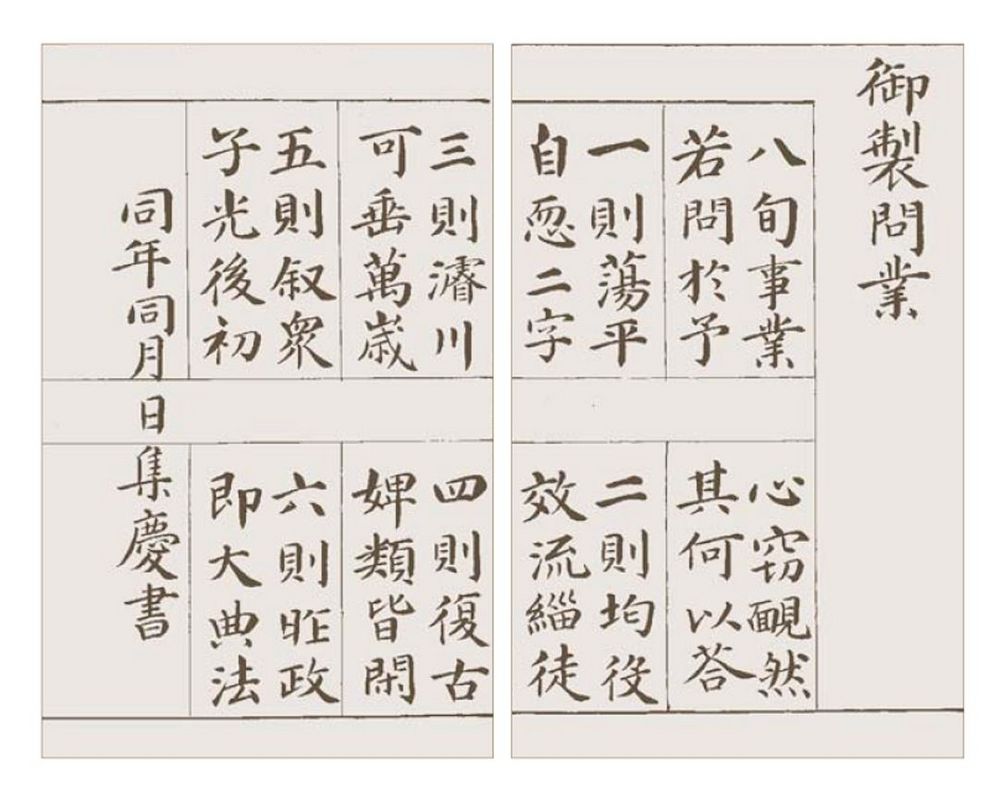 御製問業
八旬事業
若問於予
心窃靦然
其何以荅
一則蕩平
自恧二字
二則均役
效流緇徒
三則濬川
可垂萬歲
四則復古
婢類皆閑
五則叙衆
子光後初
六則昨政
即大典法
同年同月日集慶書